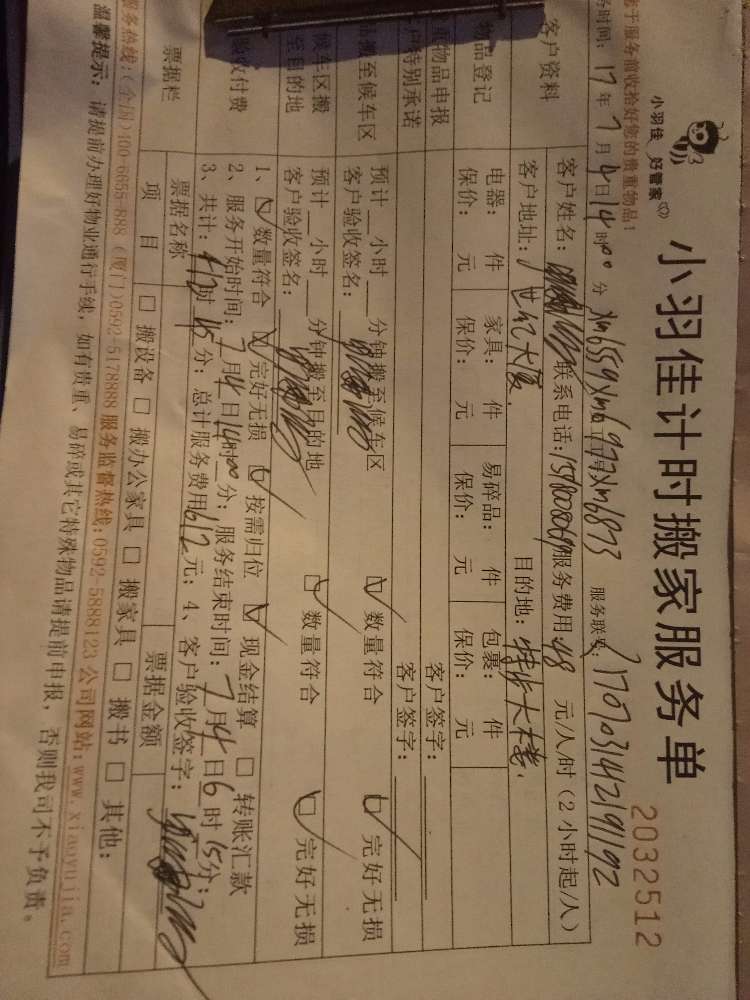 小羽佳 好管家
小羽佳计时搬家服务单
2032512
于服务前收拾好您的贵重物品!
时间: 17年7月4日14时00分 服务联系:
客户资料
客户姓名: 联系电话: 服务费用: 48 元/人/时 (2小时起/人)
客户地址: 世纪大厦. 目的地: 大楼.
物品登记
电器: 件 家具: 件 易碎品: 件 包裹: 件
保价: 元 保价: 元 保价: 元 保价: 元
重物品申报 客户签字:
户特别承诺 客户签字:
品搬至候车区
预计 小时 分钟搬至候车区 数量符合 完好无损
客户验收签名:
候车区搬
至目的地
预计 小时 分钟搬至目的地 数量符合 完好无损
客户验收签名:
验收付费
1、 数量符合 完好无损 按需归位 现金结算 转账汇款
2、服务开始时间: 7月4日14时00分; 服务结束时间: 7月4日6时15分;
3、共计: 时45分; 总计服务费用612元; 4、客户验收签字:
票据栏
票据名称 票据金额
项目 搬设备 搬办公家具 搬家具 搬书 其他:
服务热线:(全国)400-6655-888 (厦门)0592-5178888 服务监督热线:0592-5888123 公司网站:www.xiaoyujia.com
温馨提示: 请提前办理好物业通行手续, 如有贵重、易碎或其它特殊物品请提前申报, 否则我司不予负责。